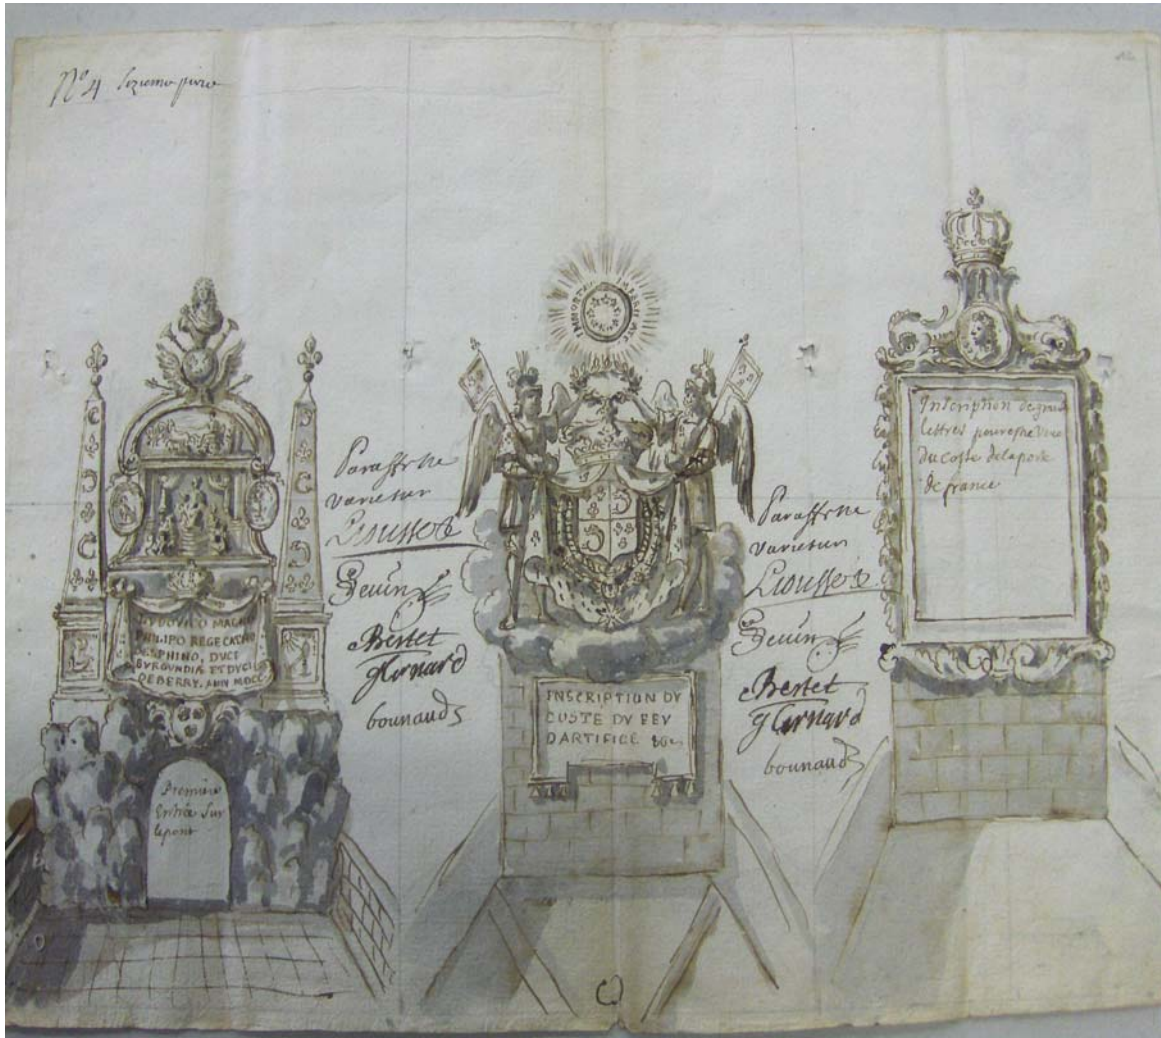 No 4 seizieme piece
IMMORTALI IMPERII
LUDOVICO MAGNO
PHILIPO REGE CATHO
DAPHINO, DUCE
BURGUNDIÆ ET DUCE
DE BERRY. ANN MDCC
Premiere
Entrée Sur
le pont
Paraffé ne
varietur
Lioussé
Seuin
Bertet
bounaud
INSCRIPTION DV
COSTE DV FEV
DARTIFICE &c
Paraffé ne
varietur
Lioussé
Seuin
Bertet
bounaud
Inscription de grand
lettres pour estre veue
du coste de la porte
de france